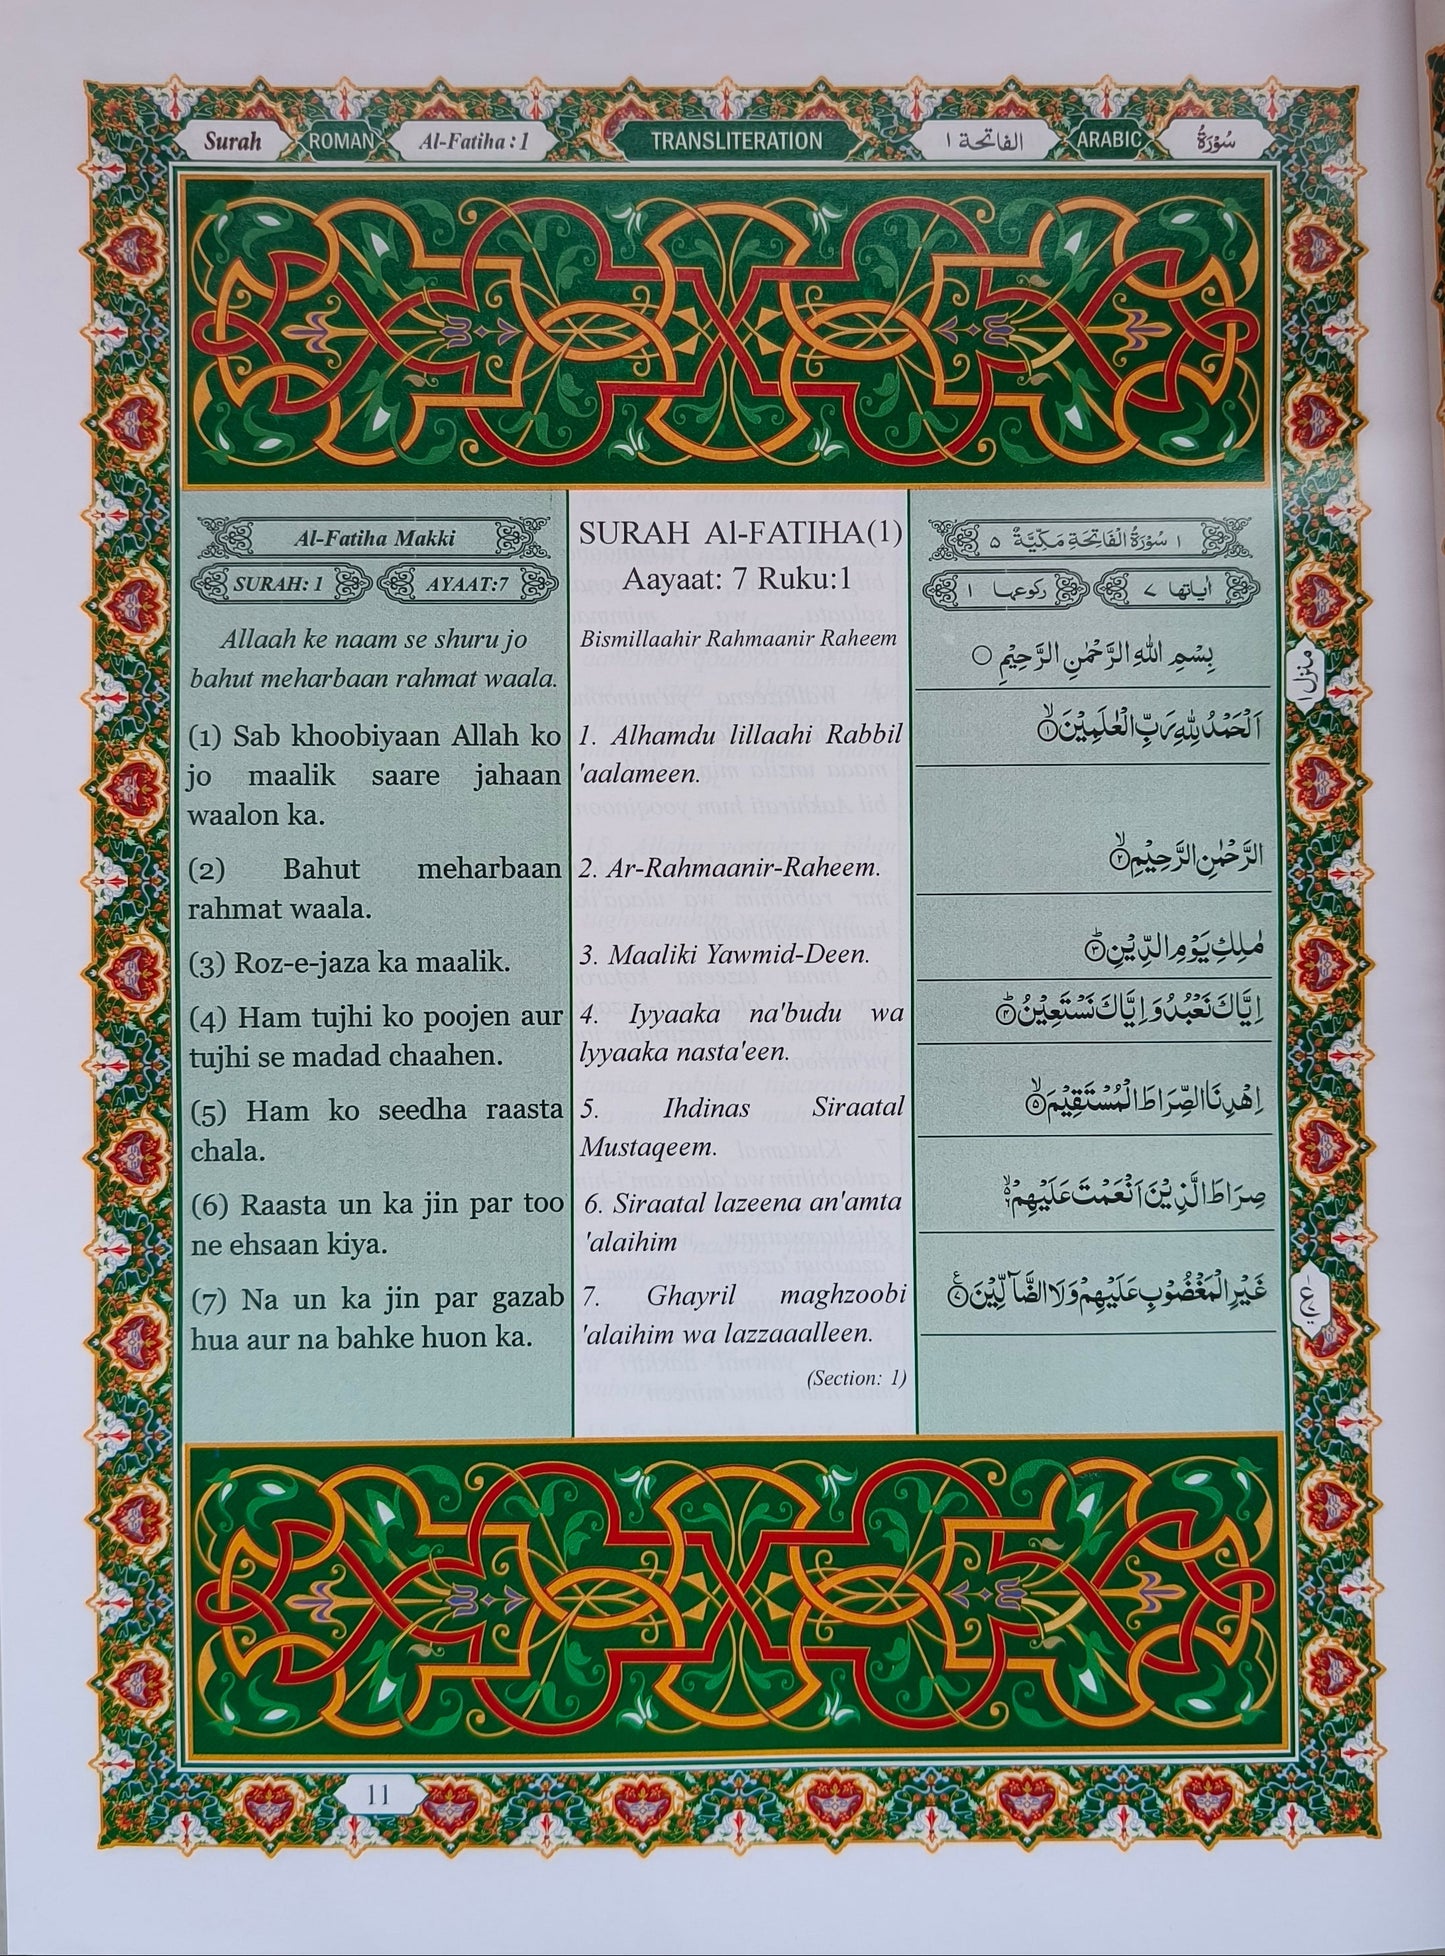 Surah ROMAN Al-Fatiha : 1 TRANSLITERATION الفاتحة ١ ARABIC سُوْرَةُ
Al-Fatiha Makki
SURAH: 1 AYAAT:7
Allaah ke naam se shuru jo
bahut meharbaan rahmat waala.
(1) Sab khoobiyaan Allah ko
jo maalik saare jahaan
waalon ka.
(2) Bahut meharbaan
rahmat waala.
(3) Roz-e-jaza ka maalik.
(4) Ham tujhi ko poojen aur
tujhi se madad chaahen.
(5) Ham ko seedha raasta
chala.
(6) Raasta un ka jin par too
ne ehsaan kiya.
(7) Na un ka jin par gazab
hua aur na bahke huon ka.
SURAH Al-FATIHA(1)
Aayaat: 7 Ruku:1
Bismillaahir Rahmaanir Raheem
1. Alhamdu lillaahi Rabbil
'aalameen.
2. Ar-Rahmaanir-Raheem.
3. Maaliki Yawmid-Deen.
4. Iyyaaka na'budu wa
lyyaaka nasta'een.
5. Ihdinas Siraatal
Mustaqeem.
6. Siraatal lazeena an'amta
'alaihim
7. Ghayril maghzoobi
'alaihim wa lazzaaalleen.
(Section: 1)
١ سُوْرَةُ الْفَاتِحَةِ مَكِّيَّةٌ ٥
اٰیاتها ٧ ركوعها ١
بِسْمِ اللهِ الرَّحْمٰنِ الرَّحِيْمِ ○
اَلْحَمْدُ لِلّٰهِ رَبِّ الْعٰلَمِيْنَ ۙ﴿١﴾
الرَّحْمٰنِ الرَّحِيْمِ ۙ﴿٢﴾
مٰلِكِ يَوْمِ الدِّيْنِ ؕ﴿٣﴾
اِيَّاكَ نَعْبُدُ وَاِيَّاكَ نَسْتَعِيْنُ ؕ﴿۴﴾
اِهْدِنَا الصِّرَاطَ الْمُسْتَقِيْمَ ۙ﴿۵﴾
صِرَاطَ الَّذِيْنَ اَنْعَمْتَ عَلَيْهِمْ ۙ﴿۶﴾
غَيْرِ الْمَغْضُوْبِ عَلَيْهِمْ وَلَا الضَّآلِّيْنَ ﴿٧﴾
منزل ١
ع
11